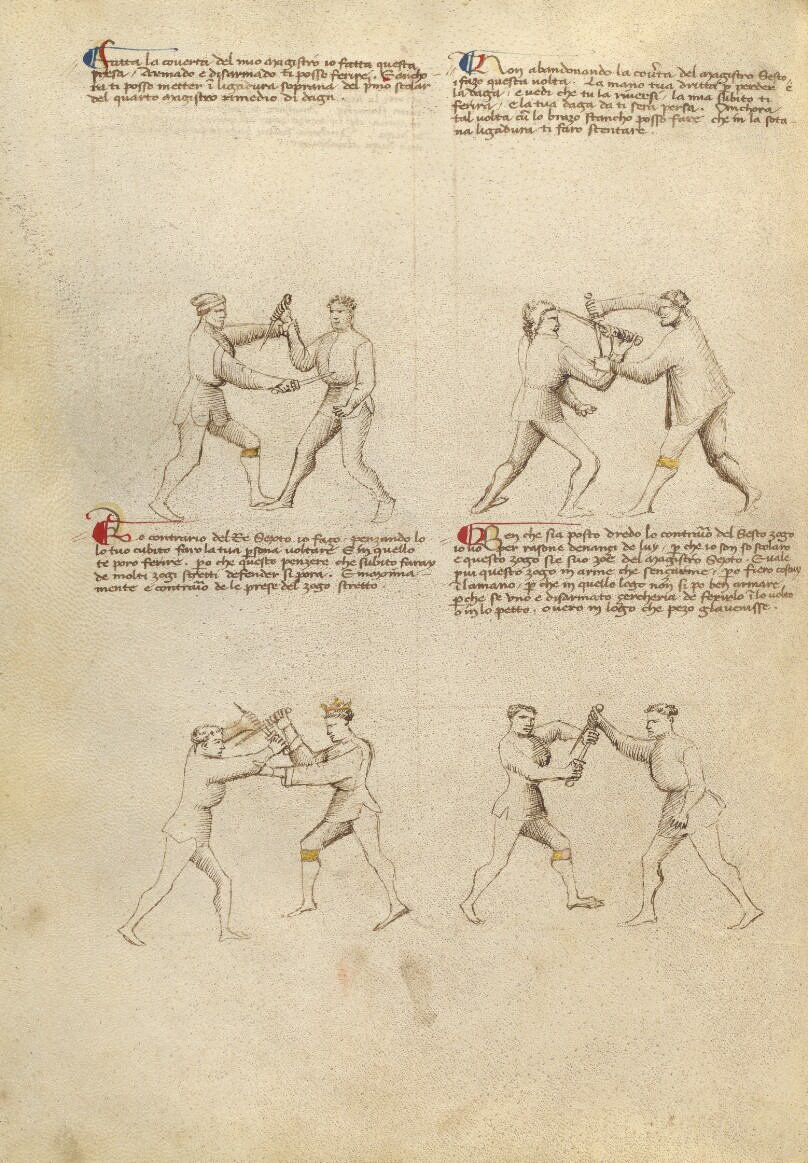 Fatta la coverta del mio magistro io fatta questa
presa / Armado e disarmado ti posso ferire. E ancho
ra ti posso metter i ligadura soprana del pmo scolar
del quarto magistro rimedio di daga.
Non abandonando la cov̄ta del magistro Sesto
i fazo questa volta. La mano tua dritta p perder e
la daga / e vedi che tu la riversi / la mia subito ti
ferira / e la tua daga da ti sera persa. Anchora
tal volta cū lo brazo stancho posso fare che in la sota
na ligadura ti faro stentare.
Lo contrario del Re Sexto io fazo / penzando lo
lo tuo cubito faro la tua psona voltare E in quello
te poro ferire. po che questo penzere che subito faray
de molti zogi stretti defender si pora. E maxima
mente e contrario de le prese del zogo stretto
Ben che sia posto dredo lo contrario del Sesto zogo
io vo per rasone denanzi de luy / p che io son so scolaro
e questo zogo sie suo zoe del magistro Sexto. E vale
piu questo zogo in arme che sencarme / po fiero costuy
ī la mano p che in quello logo non si po ben armare /
p che se uno e disarmato cercheria de ferirlo ī lo volto
o in lo petto. overo in logo che pezo glavenisse.